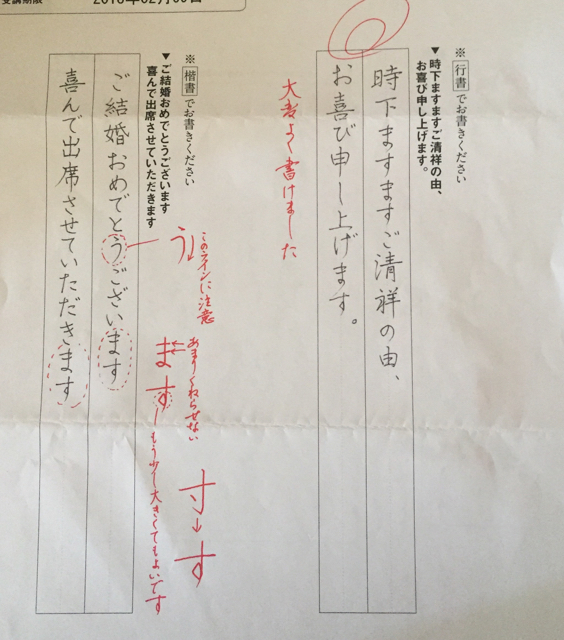 受講期限
※行書でお書きください
▼時下ますますご清祥の由、
お喜び申し上げます。
時下ますますご清祥の由、
お喜び申し上げます。
大変よく書けました
※楷書でお書きください
▼ご結婚おめでとうございます
喜んで出席させていただきます
ご結婚おめでとうございます
喜んで出席させていただきます
う
このラインに注意
ます
あまりくねらせない
もう少し大きくてもよいです
寸→す